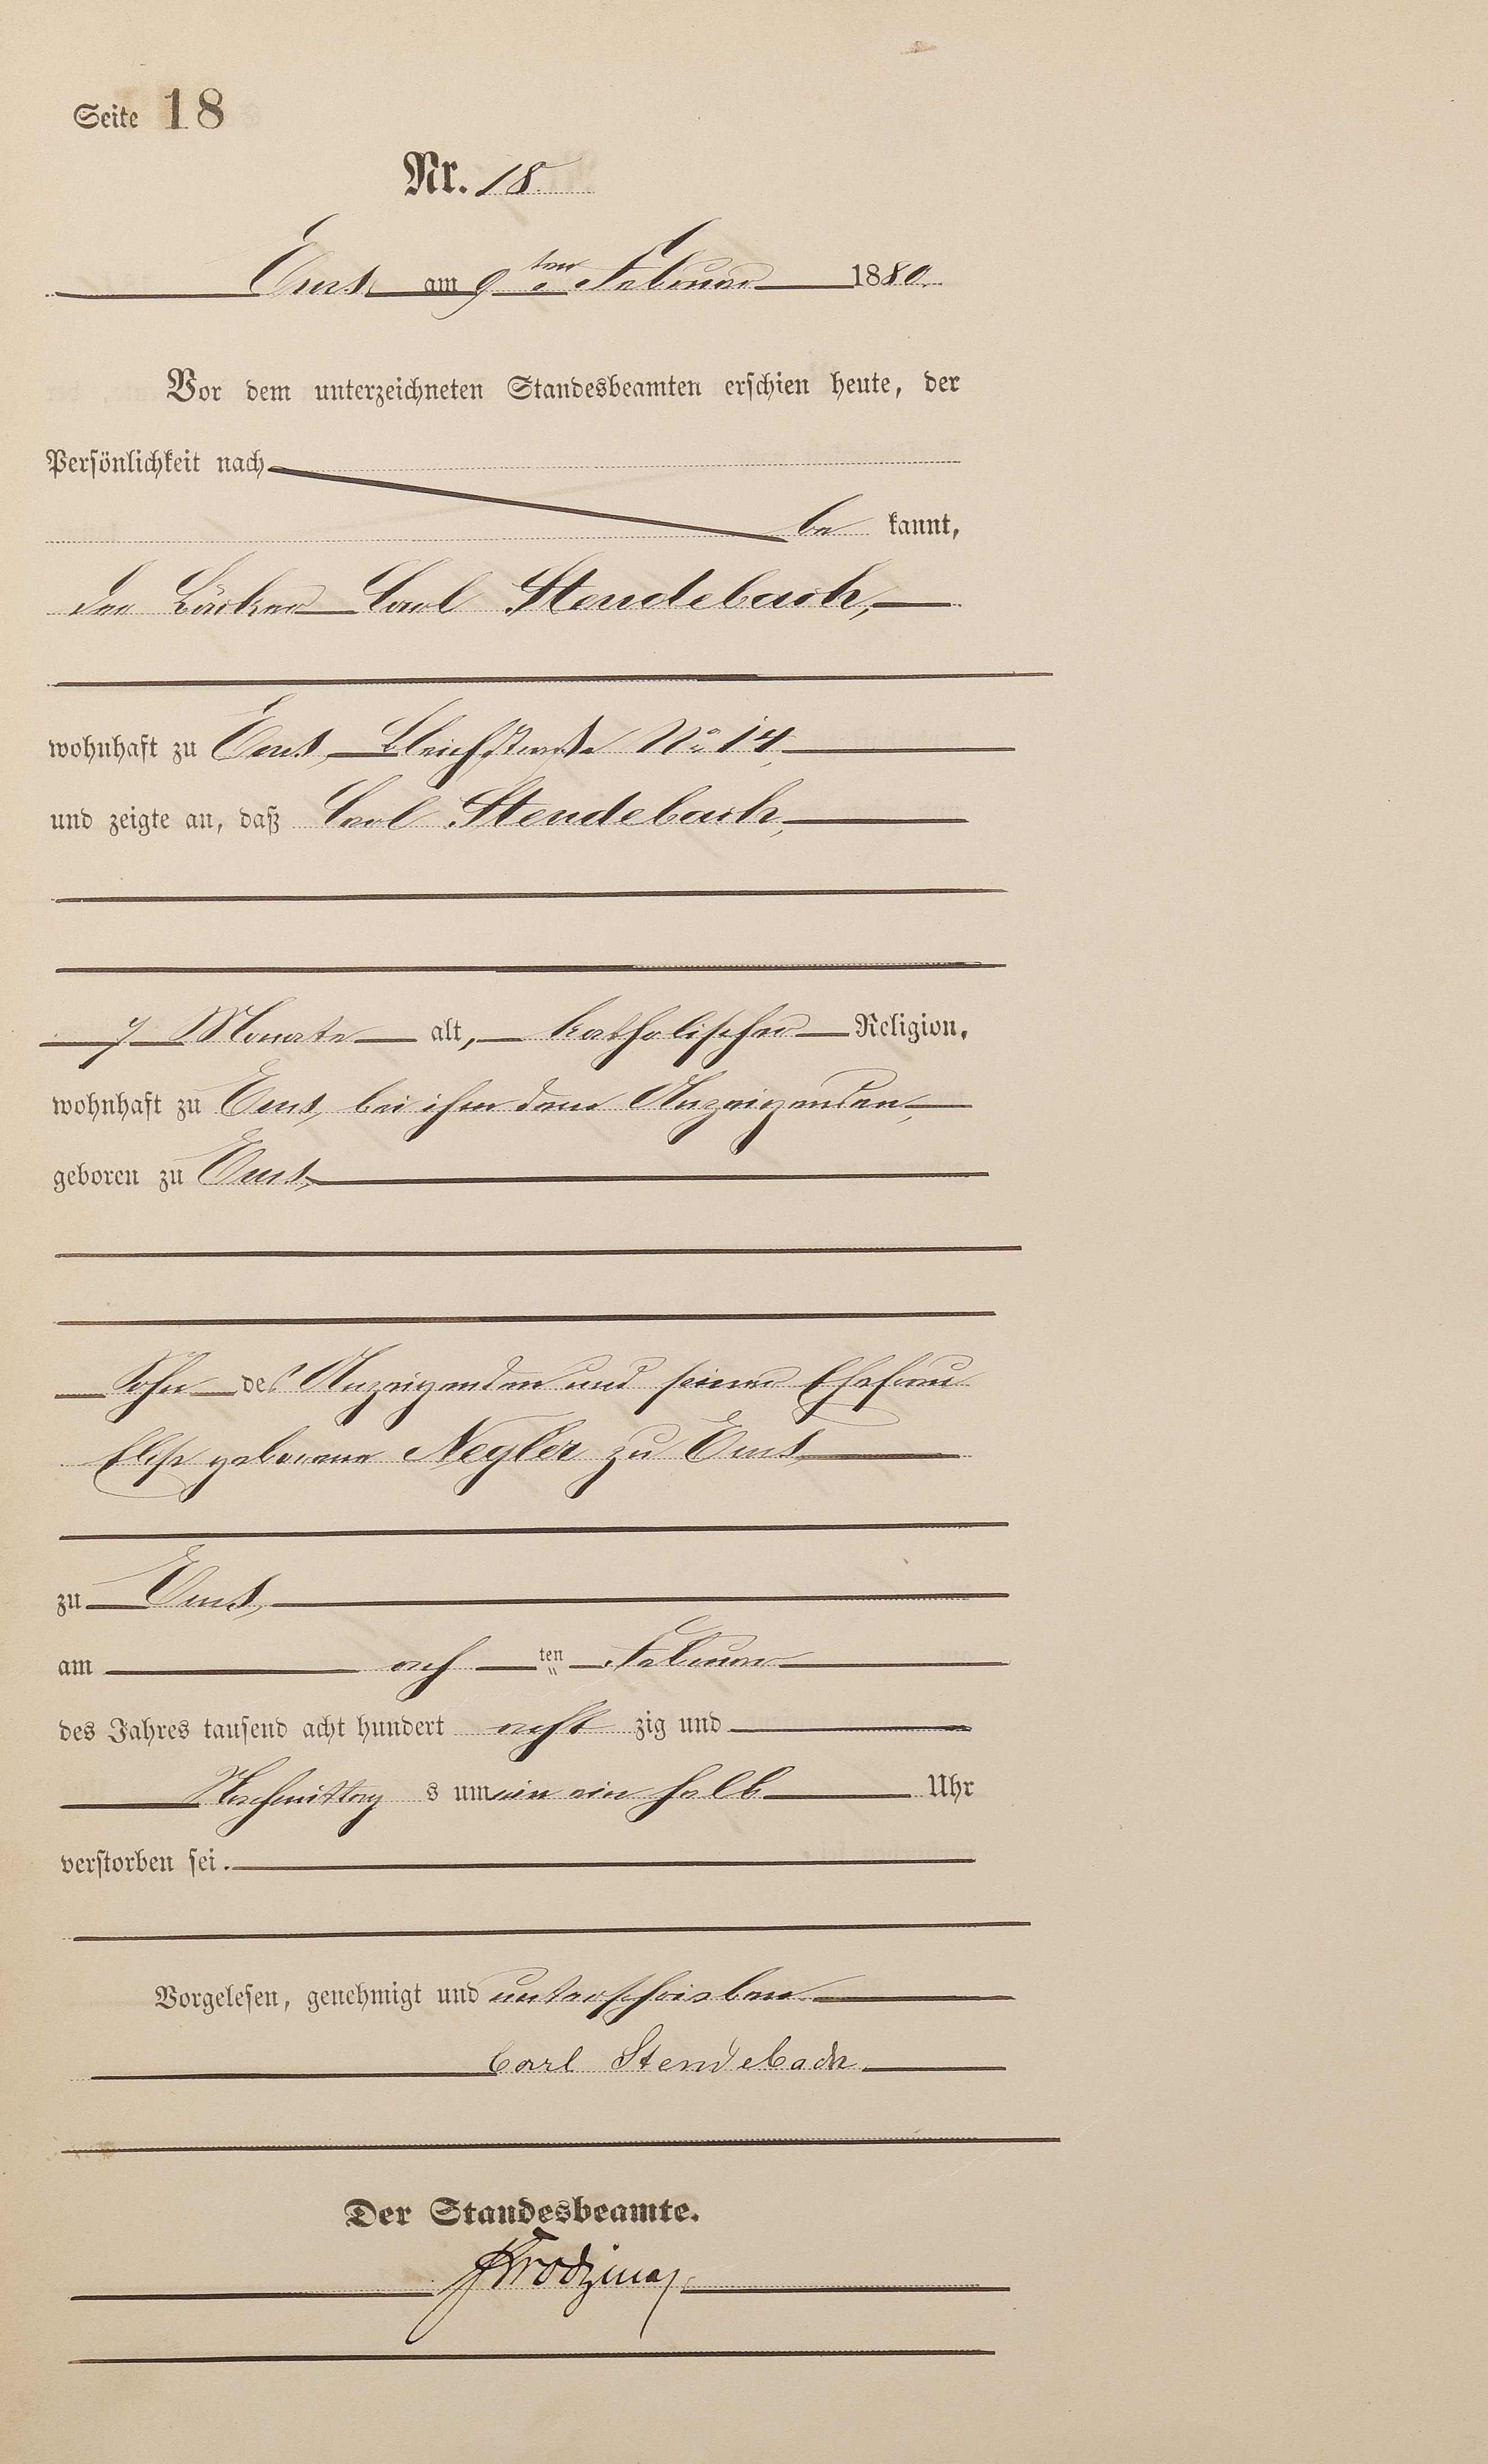 Seite 18
Nr. 18.
Ems, am 9ten Februar 1880.
Vor dem unterzeichneten Standesbeamten erschien heute, der
Persönlichkeit nach
be kannt,
der Bäcker Carl Stendebach,
wohnhaft zu Ems, Bleichstraße No 14,
und zeigte an, daß Carl Stendebach,
7 Monate alt, katholischer Religion,
wohnhaft zu Ems, bei ihm dem Anzeigenden,
geboren zu Ems,
Sohn des Anzeigenden und seiner Ehefrau
Elise geborene Negler zu Ems
zu Ems,
am ach ten Februar
des Jahres tausend acht hundert acht zig und
Nachmittag s um ein ein halb Uhr
verstorben sei.
Vorgelesen, genehmigt und unterschrieben
Carl Stendebach
Der Standesbeamte.